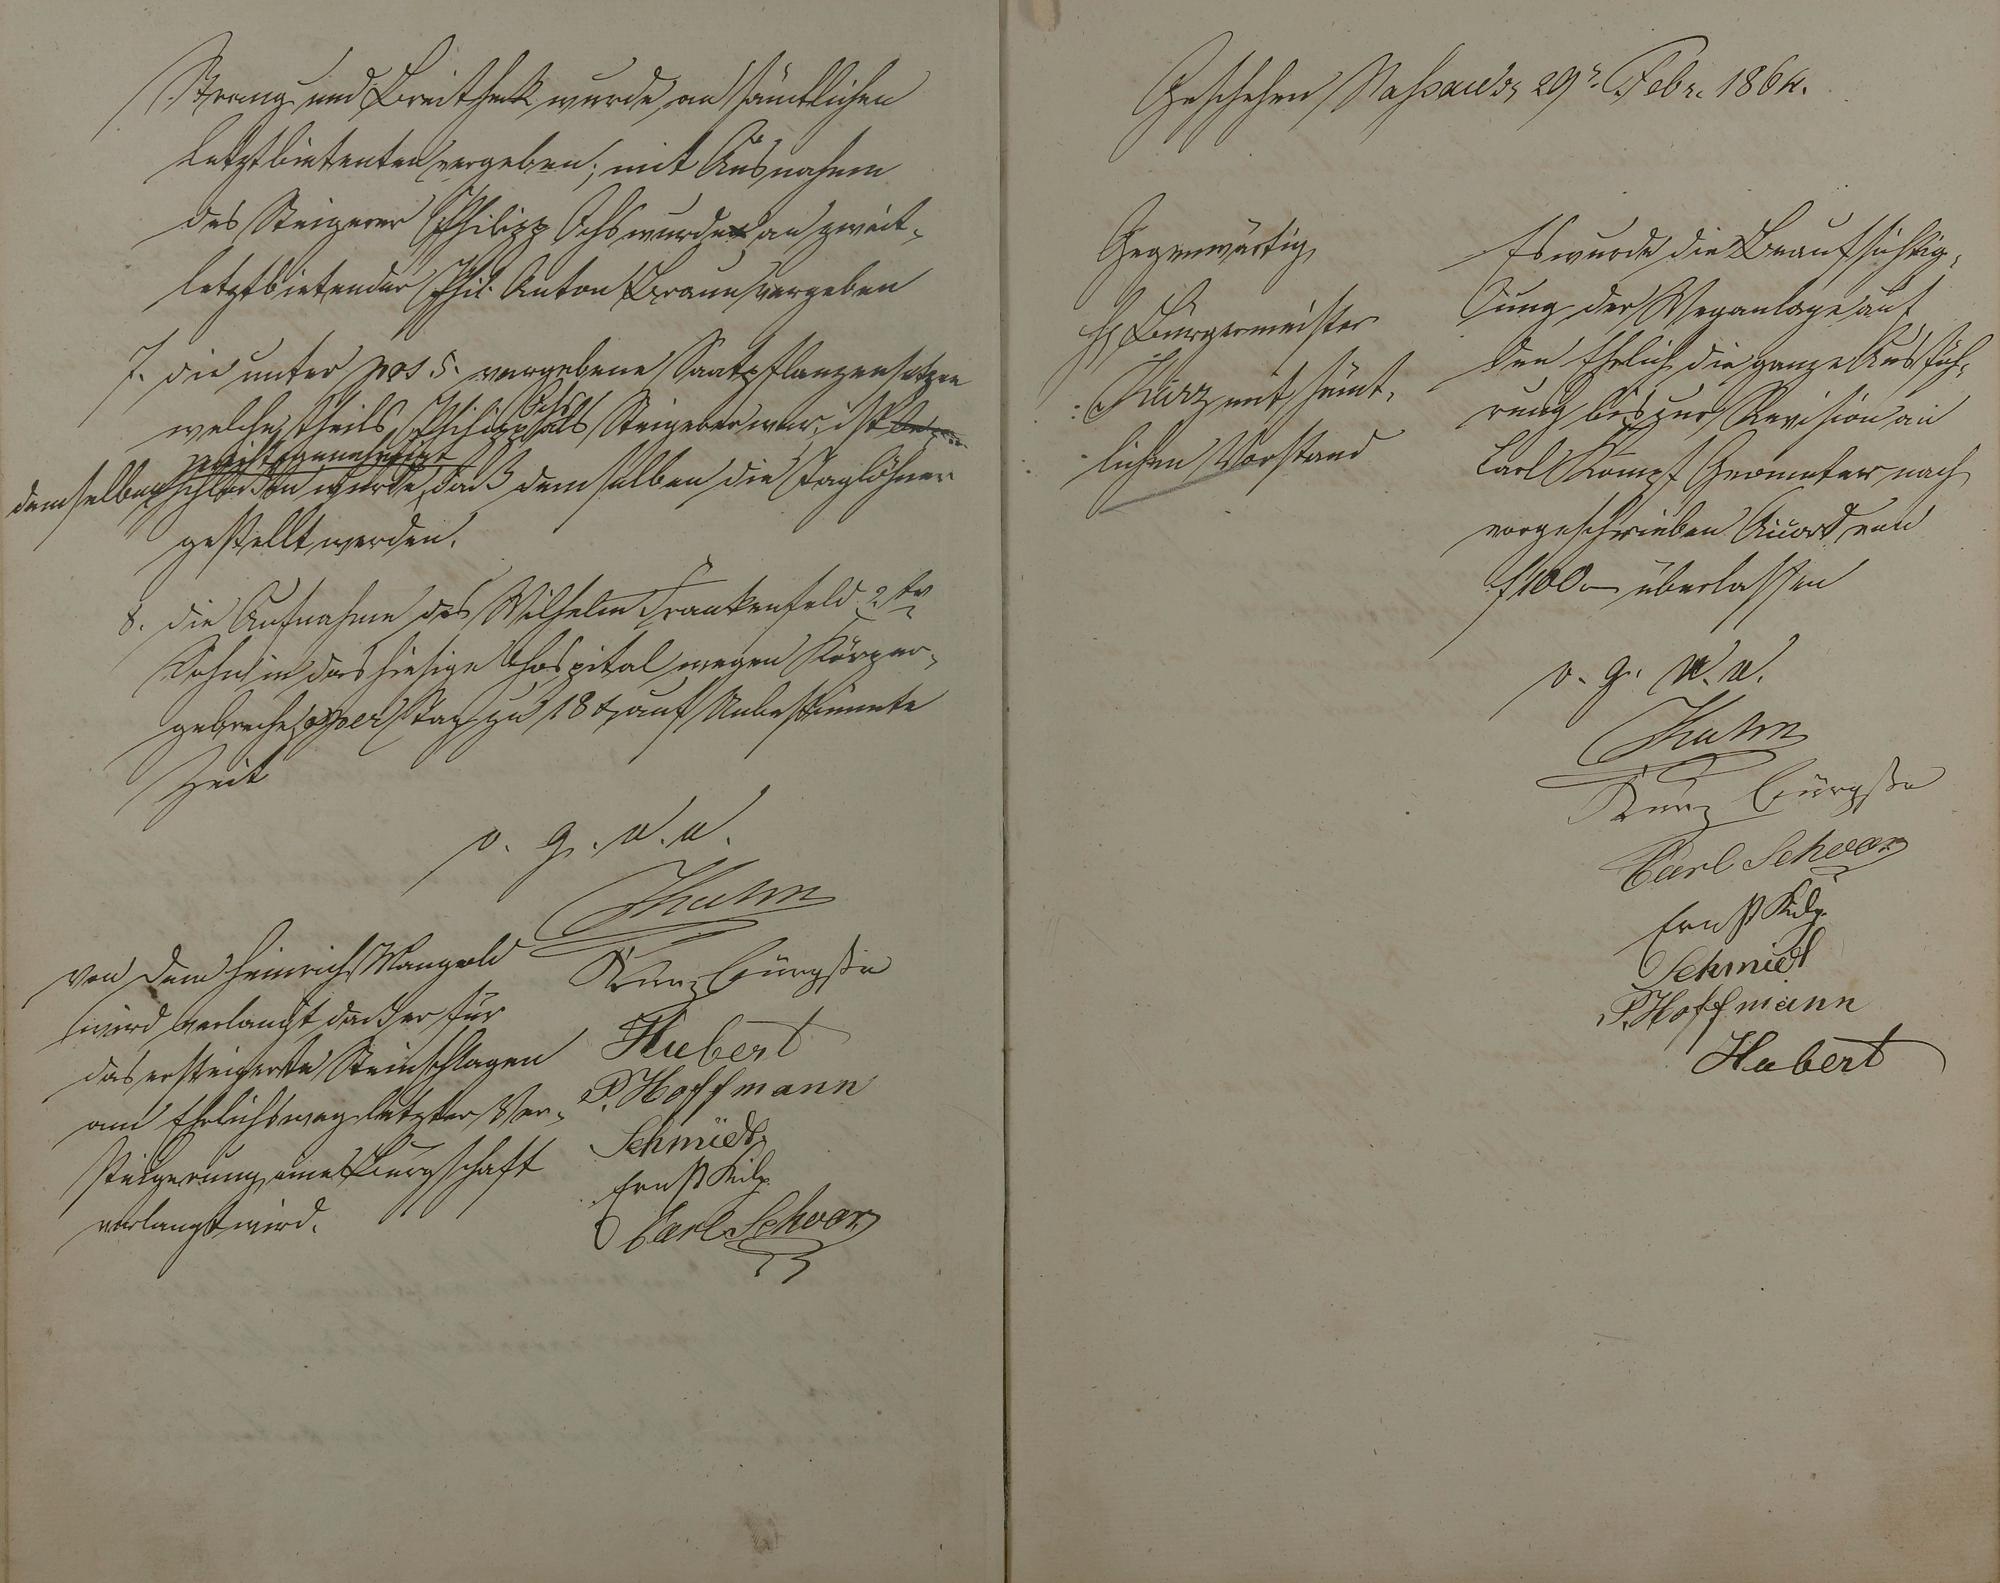 Strang und Breitheck wurde an sämtlichen
Letztbietenten vergeben, mit Ausnahme
des Steigerer Philipp Ochs wurde an zweit-
letztbietender Phil. Anton Braun vergeben
7. die unter pos. 5. vergebene Saatpflanzensetzen
welche theils Philipp Ochs als Steigerer war, ist
nicht genehmigt
demselben wurde, daß demselben die Taglöhner
gestellt werden.
8. die Aufnahme des Wilhelm Frankenfeld 2ter
Sohn in das hiesige Hospital wegen Körper-
gebreche per Tag zu 18 x auf Unbestimmte
Zeit
v. g. u. u.
Kurz Bürgstr
Hubert
P. Hoffmann
Schmidt
Ernst Kilp
Carl Schwarz
von dem Heinrich Mangold
wird verlangt daß er für
das ersteigerte Steinschlagen
am Ehrlichsweg letzter Ver-
steigerung eine Bürgschaft
verlangt wird.
Geschehen Nassau d. 29t. Febr. 1864.
Gegenwärtig
H Bürgermeister
Kurz mit sämt-
lichen Vorstand
Es wurde die Beaufsichtig-
ung der Weganlage auf
den Ehrlich die ganze Ausfüh-
rung bis zur Revision an
Carl Kompf Geometer nach
vorgeschrieben Accord um
f 100 – überlassen
v. g. u. u.
Kurz Bürgstr
Carl Schwarz
Ernst Kilp
Schmidt
P. Hoffmann
Hubert